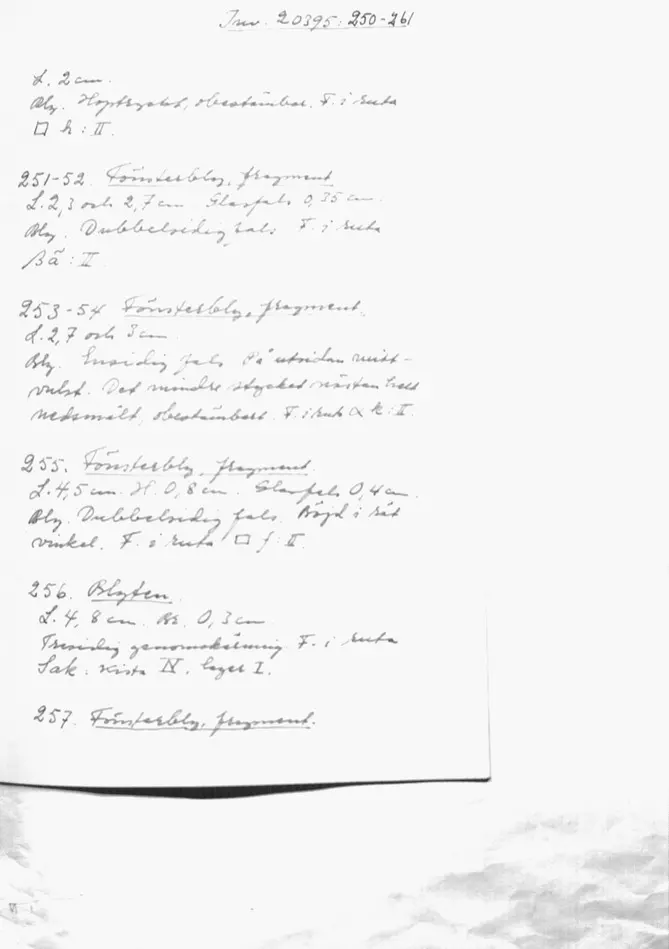 Inv. 20395: 250-261
L. 2 cm.
Bly. Hoptryckt, obestämbar. F. i ruta
□ k : II.
251-52. Fönsterbly, fragment
L. 2,3 och 2,7 cm. Glasfals 0,35 cm.
Bly. Dubbelsidig fals. F. i ruta
Bä : II
253-54 Fönsterbly, fragment.
L. 2,7 och 3 cm
Bly. Ensidig fals. På utsidan mitt-
vulst. Det mindre stycket nästan helt
nedsmält, obestämbart. F. i ruta α k : II.
255. Fönsterbly, fragment.
L. 4,5 cm. H. 0,8 cm. Glasfals 0,4 cm.
Bly. Dubbelsidig fals. Böjd i rät
vinkel. F. i ruta □ f : II.
256. Blyten
L. 4,8 cm. Br. 0,3 cm
Tresidig genomskärning. F. i ruta
Sak. kista IV. lager I.
257. Fönsterbly, fragment.